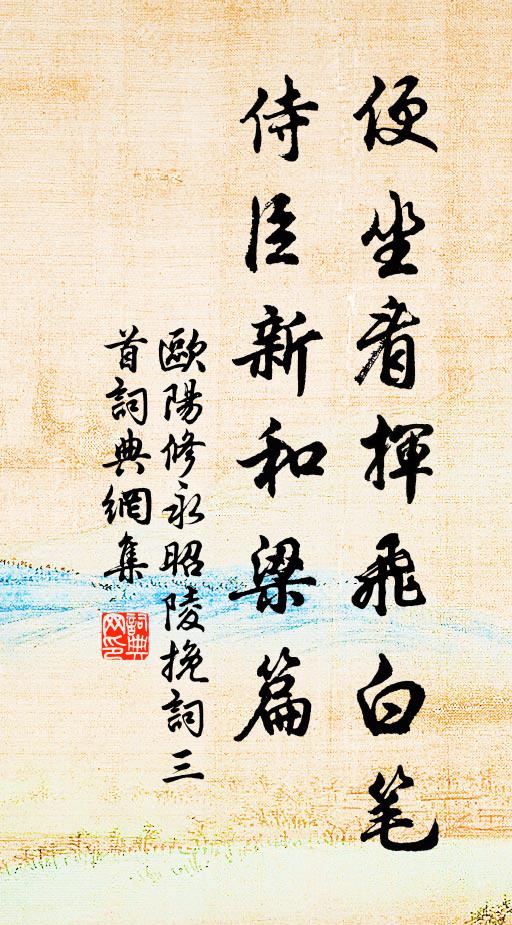 便坐看揮飛白笔
侍臣新和梁篇
歐陽修永昭陵挽詞三
首詞典網集
詞典
网印